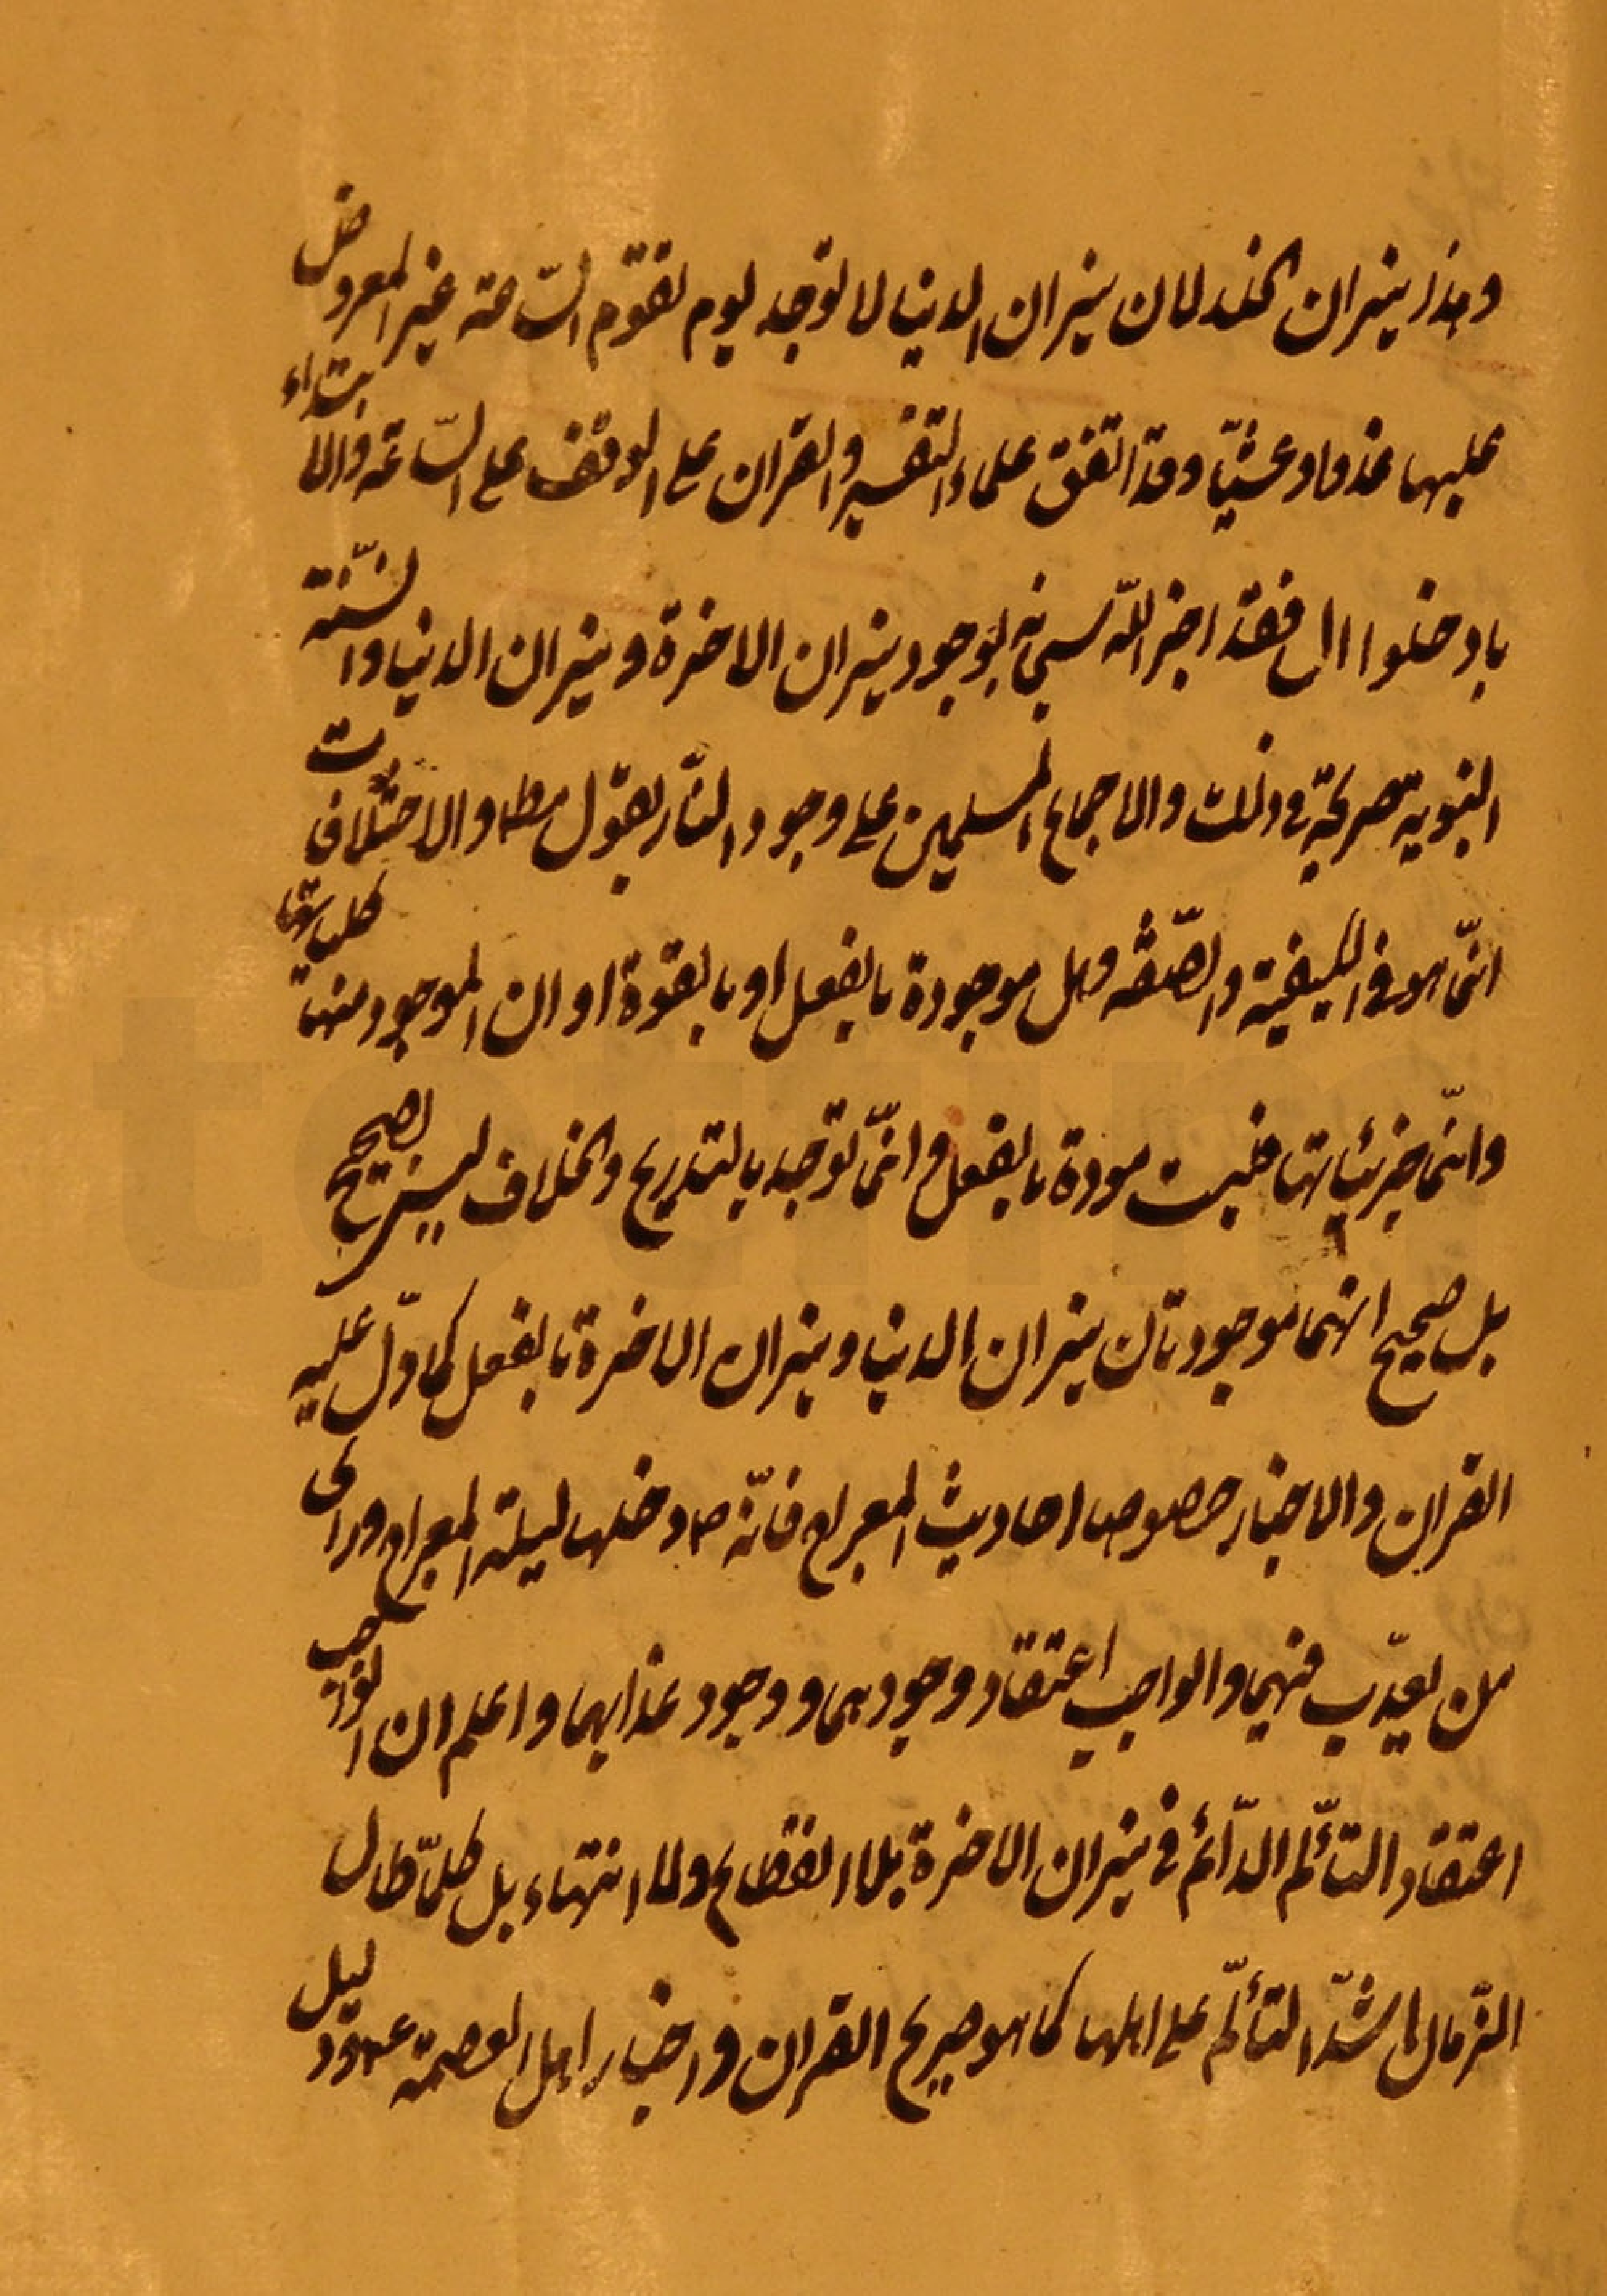 وهذا نيران الخلد لان نيران الدنيا لا توجد يوم تقوم السّاعة غير المعروض
عليها غدوا وعشيّا وقد اتفق علماء التفسير والقران على الوقف على السّاعة والابتداء
بادخلوا ال فقد اخبر اللّه سبحانه بوجود نيران الاخرة ونيران الدنيا والسّنة
النبوية صريحة في ذلك والاجماع المسلمين على وجود النّار بقول مطلـ والاختلافات
انّما هو في الكيفية والصّفة وهل موجودة بالفعل او بالقوة او ان الموجود منها كلياتها
وانّما جزئياتها فليست موجودة بالفعل وانّما توجد بالتدريج والخلاف ليس بصحيح
بل صحيح انهما موجودتان نيران الدنيا ونيران الاخرة بالفعل كما دلّ عليه
القران والاخبار خصوصا احاديث المعراج فانّه ص دخلها ليلة المعراج وراى
من يعذّب فيهما والواجب اعتقاد وجودهما ووجود عذابهما واعلم ان الواجب
اعتقاد التألّم الدّائم في نيران الاخرة بلا انقطاع ولا انتهاء بل كلّما طال
الزّمان اشتدّ التألّم على اهلها كما هو صريح القران واخبار اهل العصمة ع ودليل
totfim